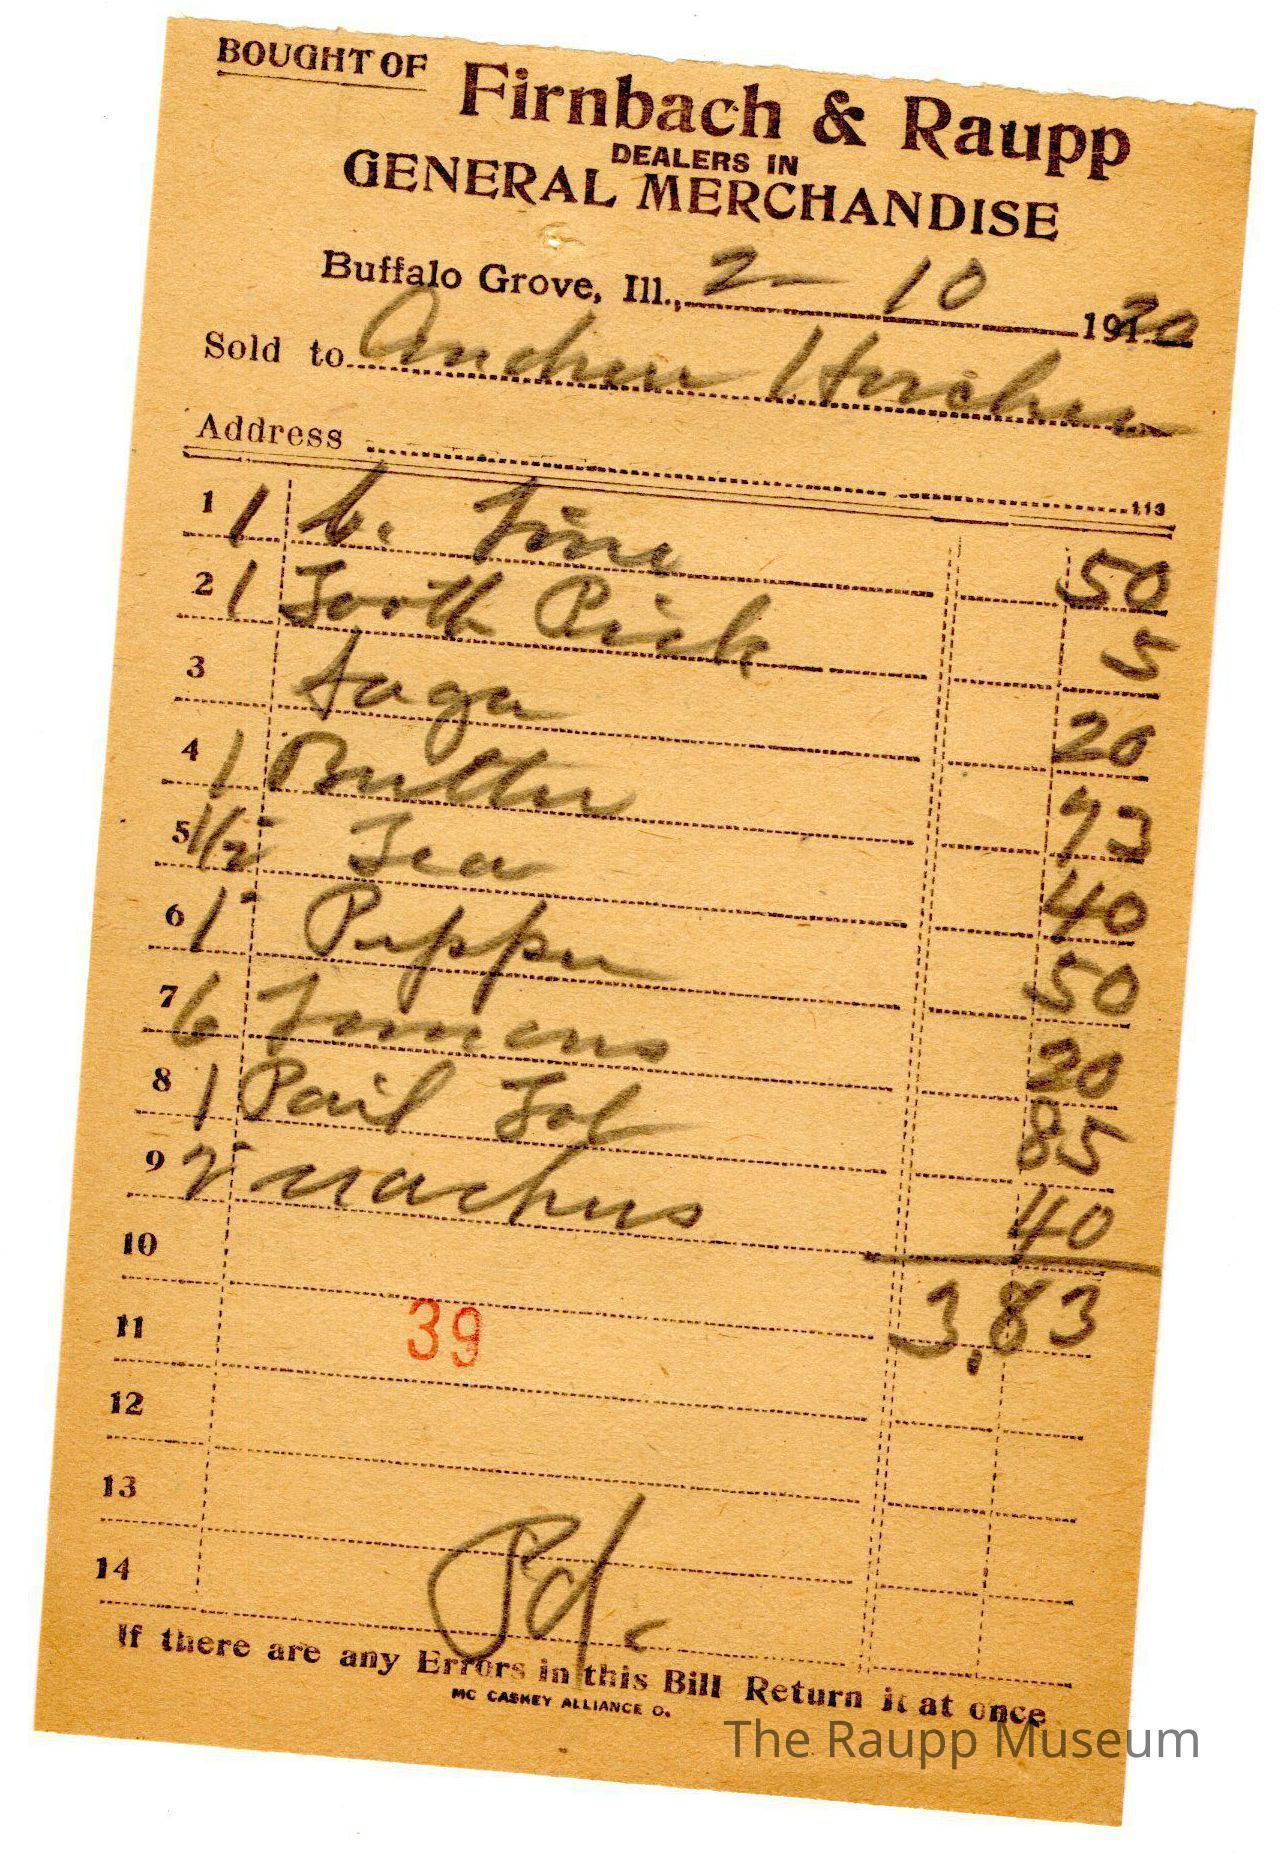 BOUGHT OF Firnbach & Raupp
DEALERS IN
GENERAL MERCHANDISE
Buffalo Grove, Ill., 2 - 10 1920
Sold to Andrew Horcher
Address
113
1 1 b. 50
2 1 Tooth Pick 5
3 Sago 20
4 1 Butter 73
5 1/2 Tea 40
6 1 Pepper 50
7 6 Lemons 20
8 1 Pail 85
9 2 40
10 3,83
11 39
12
13
14 Pd.
If there are any Errors in this Bill Return it at once
MC CASKEY ALLIANCE O.
The Raupp Museum